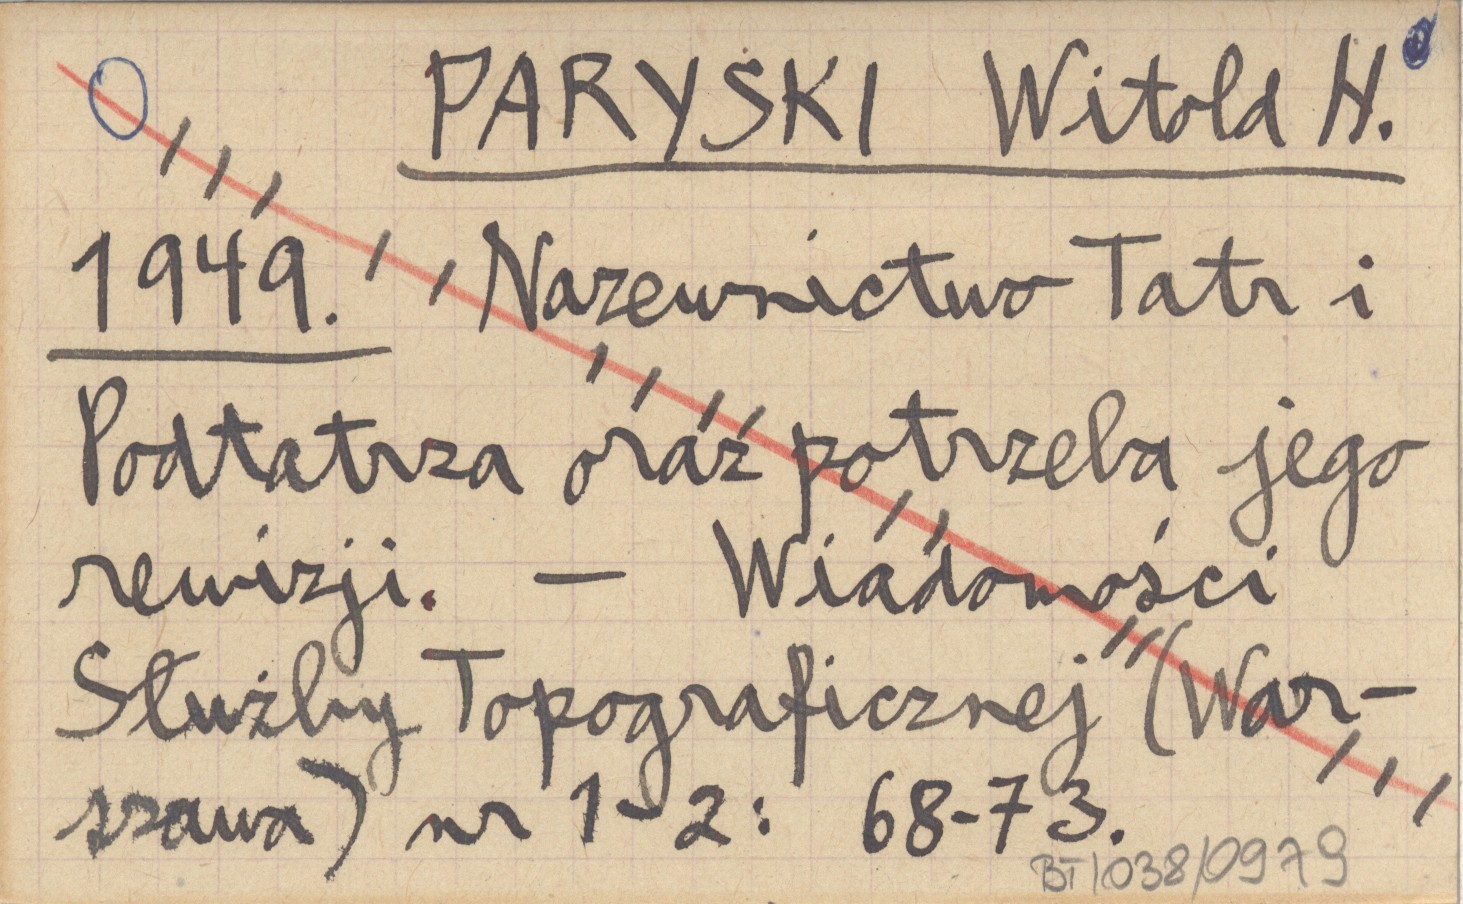 PARYSKI Witold H.
1949. Nazewnictwo Tatr i
Podtatrza oraz potrzeba jego
rewizji. — Wiadomości
Służby Topograficznej (War-
szawa) nr 1-2: 68-73.
BT/038/0979